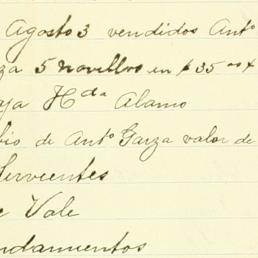 Agosto 3 vendidos Antº
za 5 novillos en $35 00
aja Hda Alamo
bio de Antº Garza valor de
Cervientes
e Vale
ndamientos